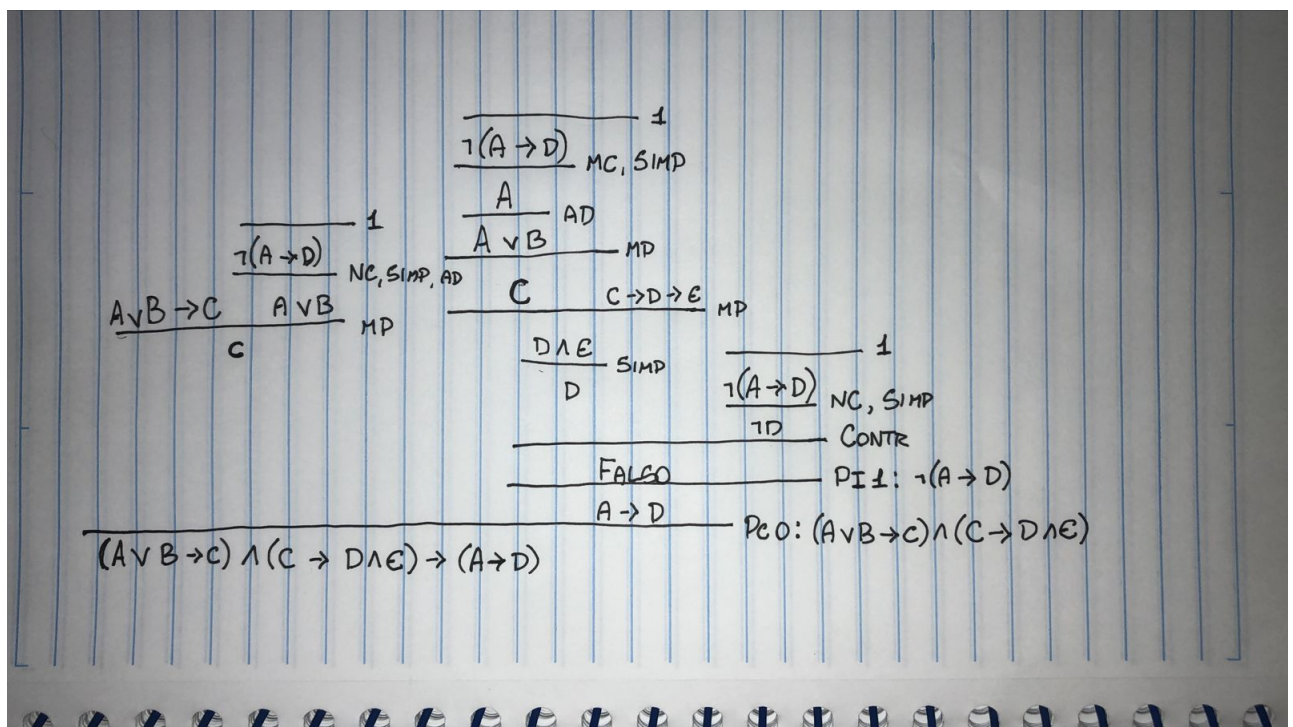 1
¬(A → D) MC, SIMP
A AD
A ∨ B MP
1
¬(A → D) NC, SIMP, AD
A∨B → C A ∨ B MP
C
C C → D → E MP
D ∧ E SIMP
D
1
¬(A → D) NC, SIMP
¬D CONTR
FALSO PI1: ¬(A → D)
A → D PC0: (A∨B → C) ∧ (C → D ∧ E)
(A ∨ B → C) ∧ (C → D∧E) → (A → D)